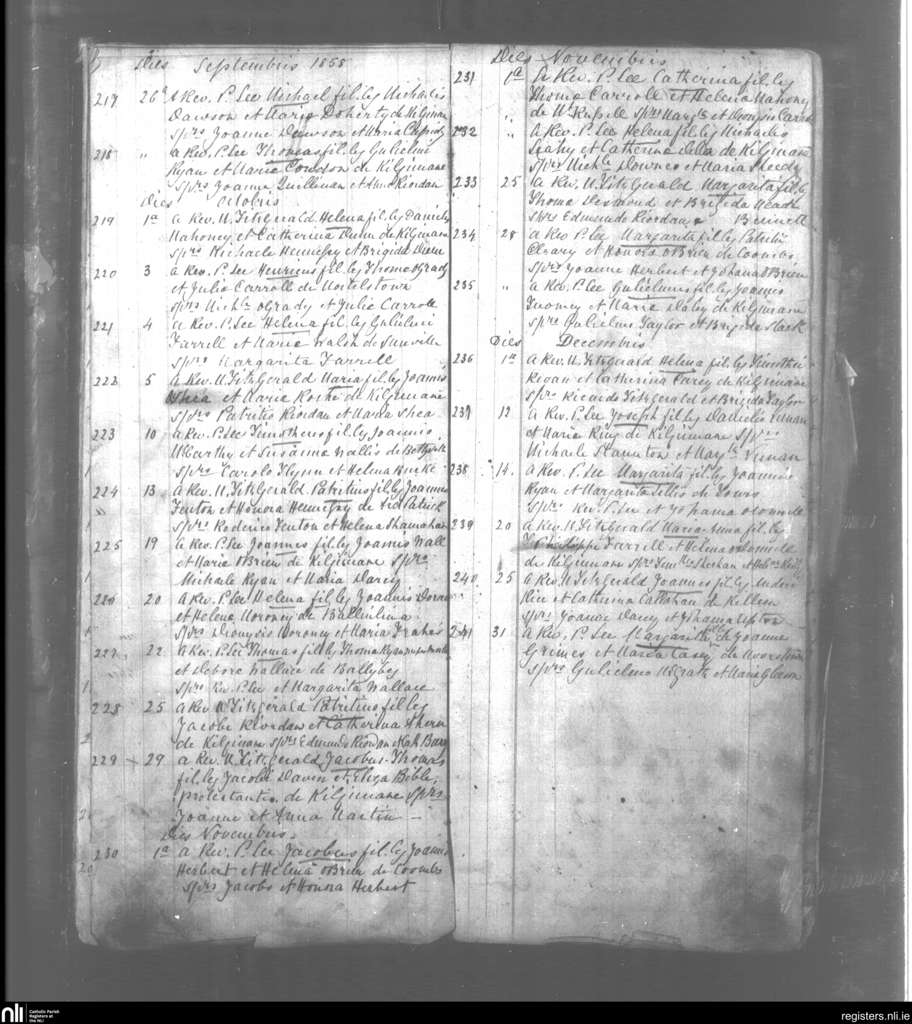 Dies Septembris 1858
217 26a A Rev. P. Lee Michael fil. leg Michaelis
Dawson et Maria Doherty de Kilfinane
Sprs Joanne Dawson et Maria
218 " A Rev. P. Lee Thomas fil. leg Gulielmi
Ryan et Maria Condon de Kilfinane
Sprs Joanne Quillinan et Anna Riordan
Dies Octobris
219 1a A Rev. M. FitzGerald Helena fil. leg Danielis
Mahoney et Catherina Dunn de Kilfinane
Sprs Michaele Hennessy et Brigida Dunn
220 3 A Rev. P. Lee Henricus fil. leg Thoma OGrady
et Julia Carroll de
Sprs Michl OGrady et Julia Carroll
221 4 A Rev. P. Lee Helena fil. leg Gulielmi
Farrell et Maria Walsh de Sunville
Sprs Margarita Farrell
222 5 A Rev. M. FitzGerald Maria fil. leg Joannis
Shea et Maria Roche de Kilfinane
Sprs Patritio Riordan et Maria Shea
223 10 A Rev. P. Lee Timotheus fil. leg Joannis
McCarthy et Susanna Wallis de
Sprs Carolo Flynn et Helena Burke
224 13 A Rev. M. FitzGerald Patritius fil. leg Joannis
Fenton et Honora Hennessy de
Sprs Roderico Fenton et Helena Shanahan
225 19 A Rev. P. Lee Joannes fil. leg Joannis Wall
et Maria OBrien de Kilfinane Sprs
Michaele Ryan et Maria Darcy
226 20 A Rev. P. Lee Helena fil. leg Joannis
et Helena Moroney de Ballinlina
Sprs Dionysio Moroney et Maria
227 22 A Rev. P. Lee Thomas fil. leg Thoma Ryan
et Debora Wallace de
Sprs Rev. P. Lee et Margarita Wallace
228 25 A Rev. M. FitzGerald Patritius fil. leg
Jacobi Riordan et Catherina Ahern
de Kilfinane Sprs Edmundo Riordan et Barry
229 29 A Rev. M. FitzGerald Jacobus Thomas
fil. leg Jacobi Davin et Eliza Bible
protestantis de Kilfinane Sprs
Joanne et Anna Martin
Dies Novembris
230 1a A Rev. P. Lee Jacobus fil. leg Joannis
Herbert et Helena OBrien de Coombs
Sprs Jacobo et Honora Herbert
Dies Novembris
231 1a A Rev. P. Lee Catherina fil. leg
Thoma Carroll et Helena Mahony
de Mt Russell Sprs et Dionysio Carroll
232 " A Rev. P. Lee Helena fil. leg Michaelis
Leahy et Catherina de Kilfinane
Sprs Michl Downes et Maria Sheedy
233 25 A Rev. M. FitzGerald Margarita fil. leg
Thoma Desmond et Brigida Meade
Sprs Edmundo Riordan
234 28 A Rev P. Lee Margarita fil. leg Patritii
Cleary et Honora OBrien de Coombs
Sprs Joanne Herbert et Johana OBrien
235 " A Rev. P. Lee Gulielmus fil. leg Joannis
Twomey et Maria Daley de Kilfinane
Sprs Gulielmo Taylor et Brigida Slack
Dies Decembris
236 1a A Rev. M. FitzGerald Helena fil. leg Timothei
Kirwan et Catherina Carey de Kilfinane
Sprs Ricardo FitzGerald et Brigida Taylor
237 12 A Rev. P. Lee Joseph fil. leg Danielis
et Maria King de Kilfinane Sprs
Michaele Staunton et Margta
238 14 A Rev. P. Lee Margarita fil. leg Joannis
Ryan et Margarita Lillis de
Sprs Rev. P. Lee et Johanna ODonnell
239 20 A Rev. M. FitzGerald Maria Anna fil. leg
Philippi Farrell et Helena ODonnell
de Kilfinane Sprs Sheehan et
240 25 A Rev. M. FitzGerald Joannes fil. leg
Rice et Catherina Callahan de
Sprs Joanne Darcy et Johanna Upton
241 31 A Rev. P. Lee Margarita fil. leg Joanne
Grimes et Maria Casey de
Sprs Gulielmo McGrath et Maria Gleeson
nli
Catholic Parish
Registers at
the NLI
registers.nli.ie